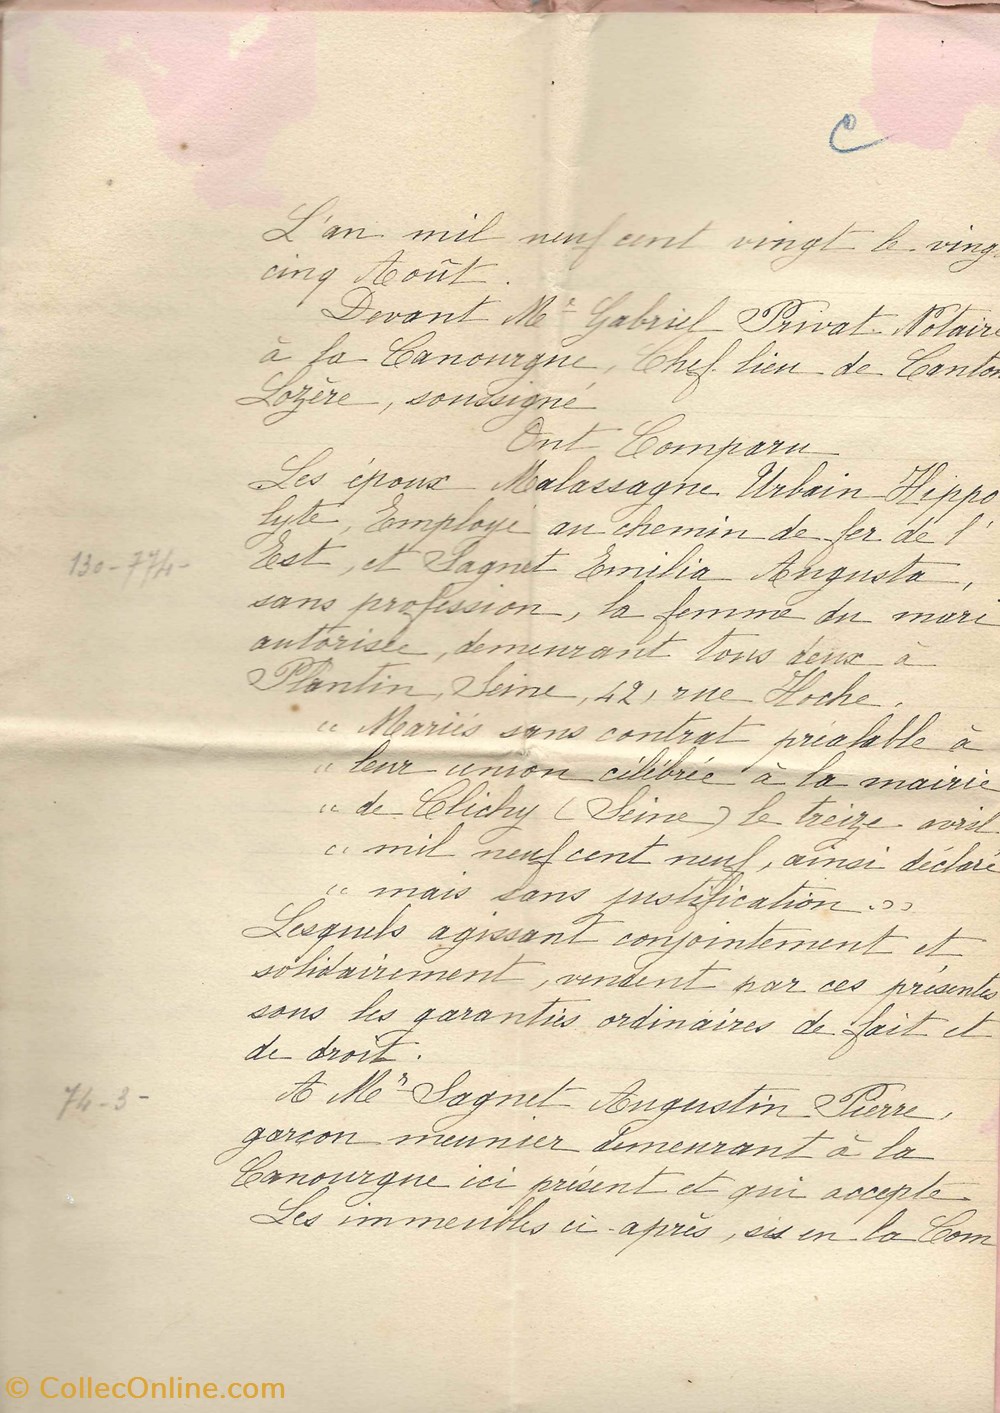 C
L'an mil neuf cent vingt le vingt
cinq Août.
Devant Me Gabriel Privat, Notaire
à la Canourgue, Chef lieu de Canton
Lozère, soussigné
Ont Comparu
Les époux Malassagne Urbain Hippo
lyte, Employé au chemin de fer de l'
130-774-
Est, et Sagnet Emilia Augusta,
sans profession, la femme du mari
autorisée, demeurant tous deux à
Plantin, Seine, 42, rue Hoche.
" Mariés sans contrat préalable à
" leur union célébrée à la mairie
" de Clichy (Seine) le treize avril
" mil neuf cent neuf, ainsi déclaré
" mais sans justification."
Lesquels agissant conjointement et
solidairement, vendent par ces présentes
sous les garanties ordinaires de fait et
de droit.
74-3-
A Mr Sagnet Augustin Pierre,
garçon meunier demeurant à la
Canourgue ici présent et qui accepte
Les immeubles ci-après, sis en la Com
© CollecOnline.com